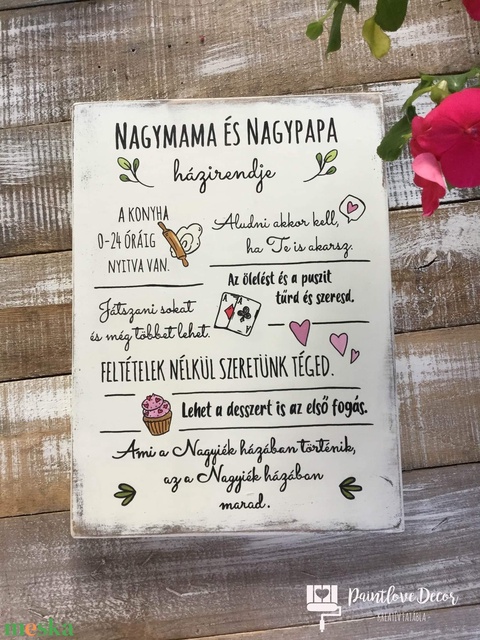 NAGYMAMA ÉS NAGYPAPA
házirendje
A KONYHA
0-24 ÓRÁIG
NYITVA VAN.
Aludni akkor kell,
ha Te is akarsz.
Az ölelést és a puszit
tűrd és szeresd.
Játszani sokat
és még többet lehet.
A
A
FELTÉTELEK NÉLKÜL SZERETÜNK TÉGED.
Lehet a desszert is az első fogás.
Ami a Nagyiék házában történik,
az a Nagyiék házában
marad.
Paintlove Decor
- KREATÍV FATÁBLA -
meska